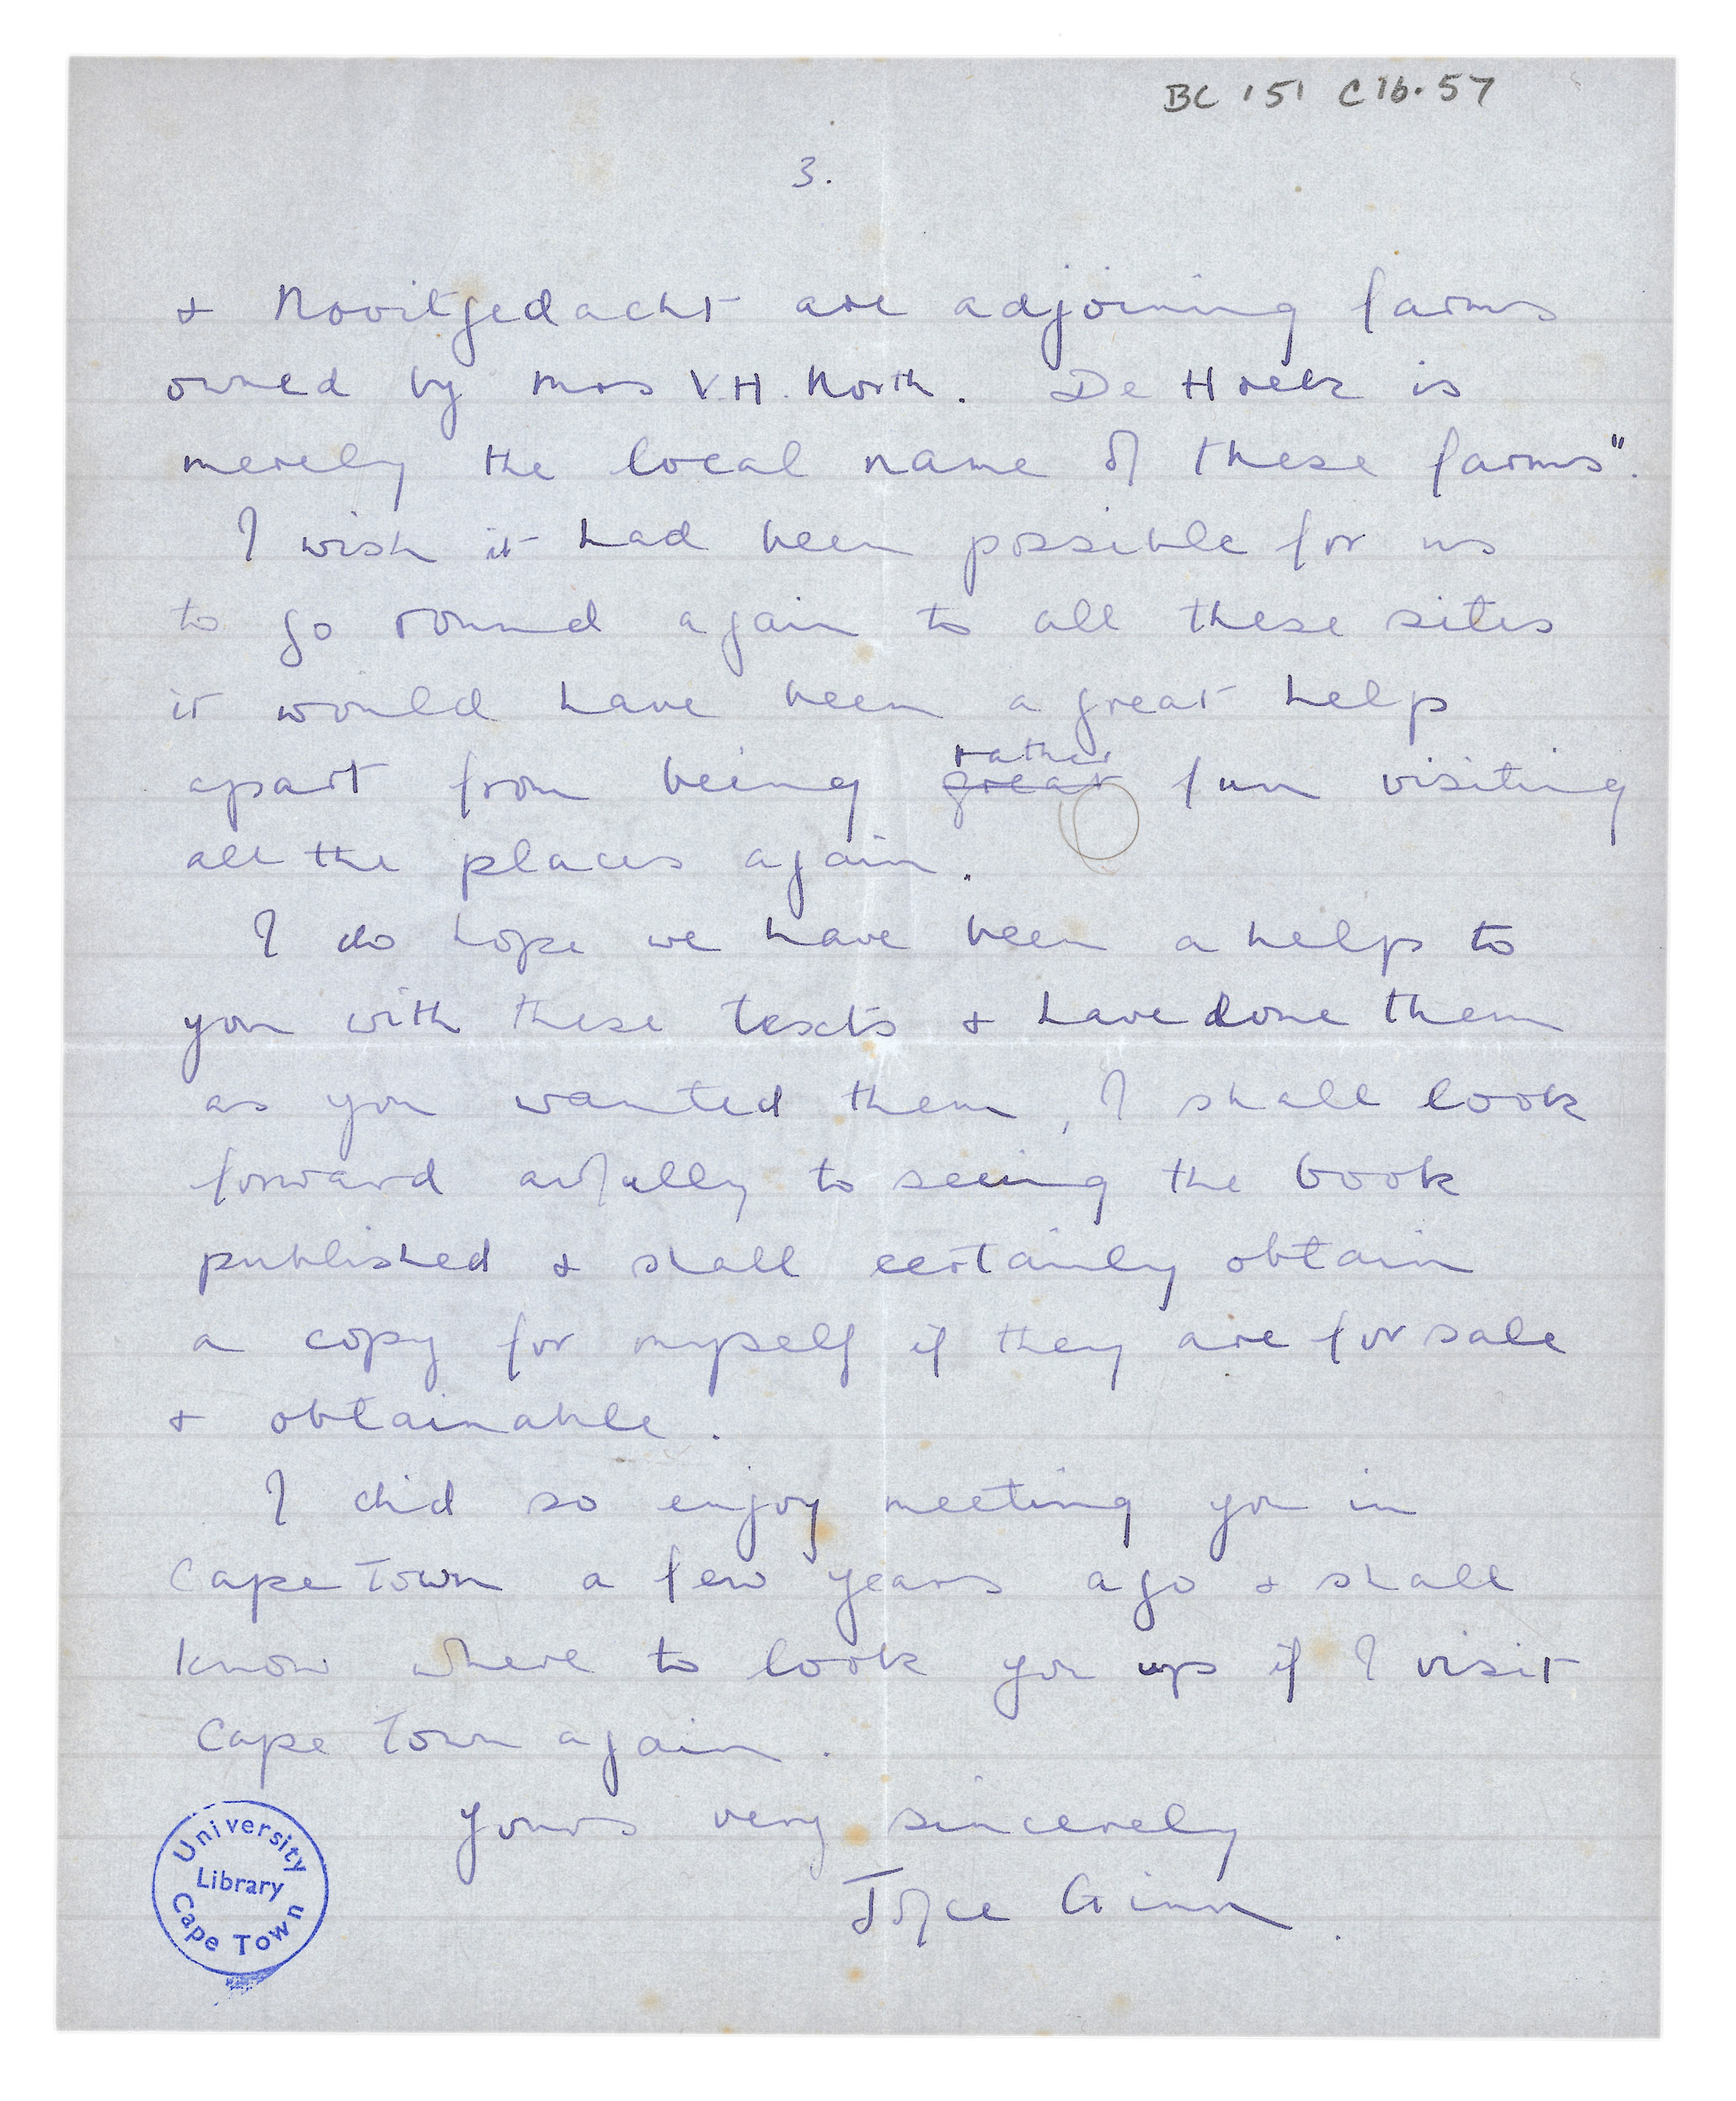 BC 151 C16.57
3.
& Nooitgedacht are adjoining farms
owned by Mrs V.H. North. De Hoek is
merely the local name of these farms".
I wish it had been possible for us
to go round again to all these sites
it would have been a great help
rather
apart from being great fun visiting
all the places again.
I do hope we have been a help to
you with these texts & have done them
as you wanted them, I shall look
forward awfully to seeing the book
published & shall certainly obtain
a copy for myself if they are for sale
& obtainable.
I did so enjoy meeting you in
Cape Town a few years ago & shall
know where to look you up if I visit
Cape Town again.
Yours very sincerely
Joyce Ginn.
University
Library
Cape Town